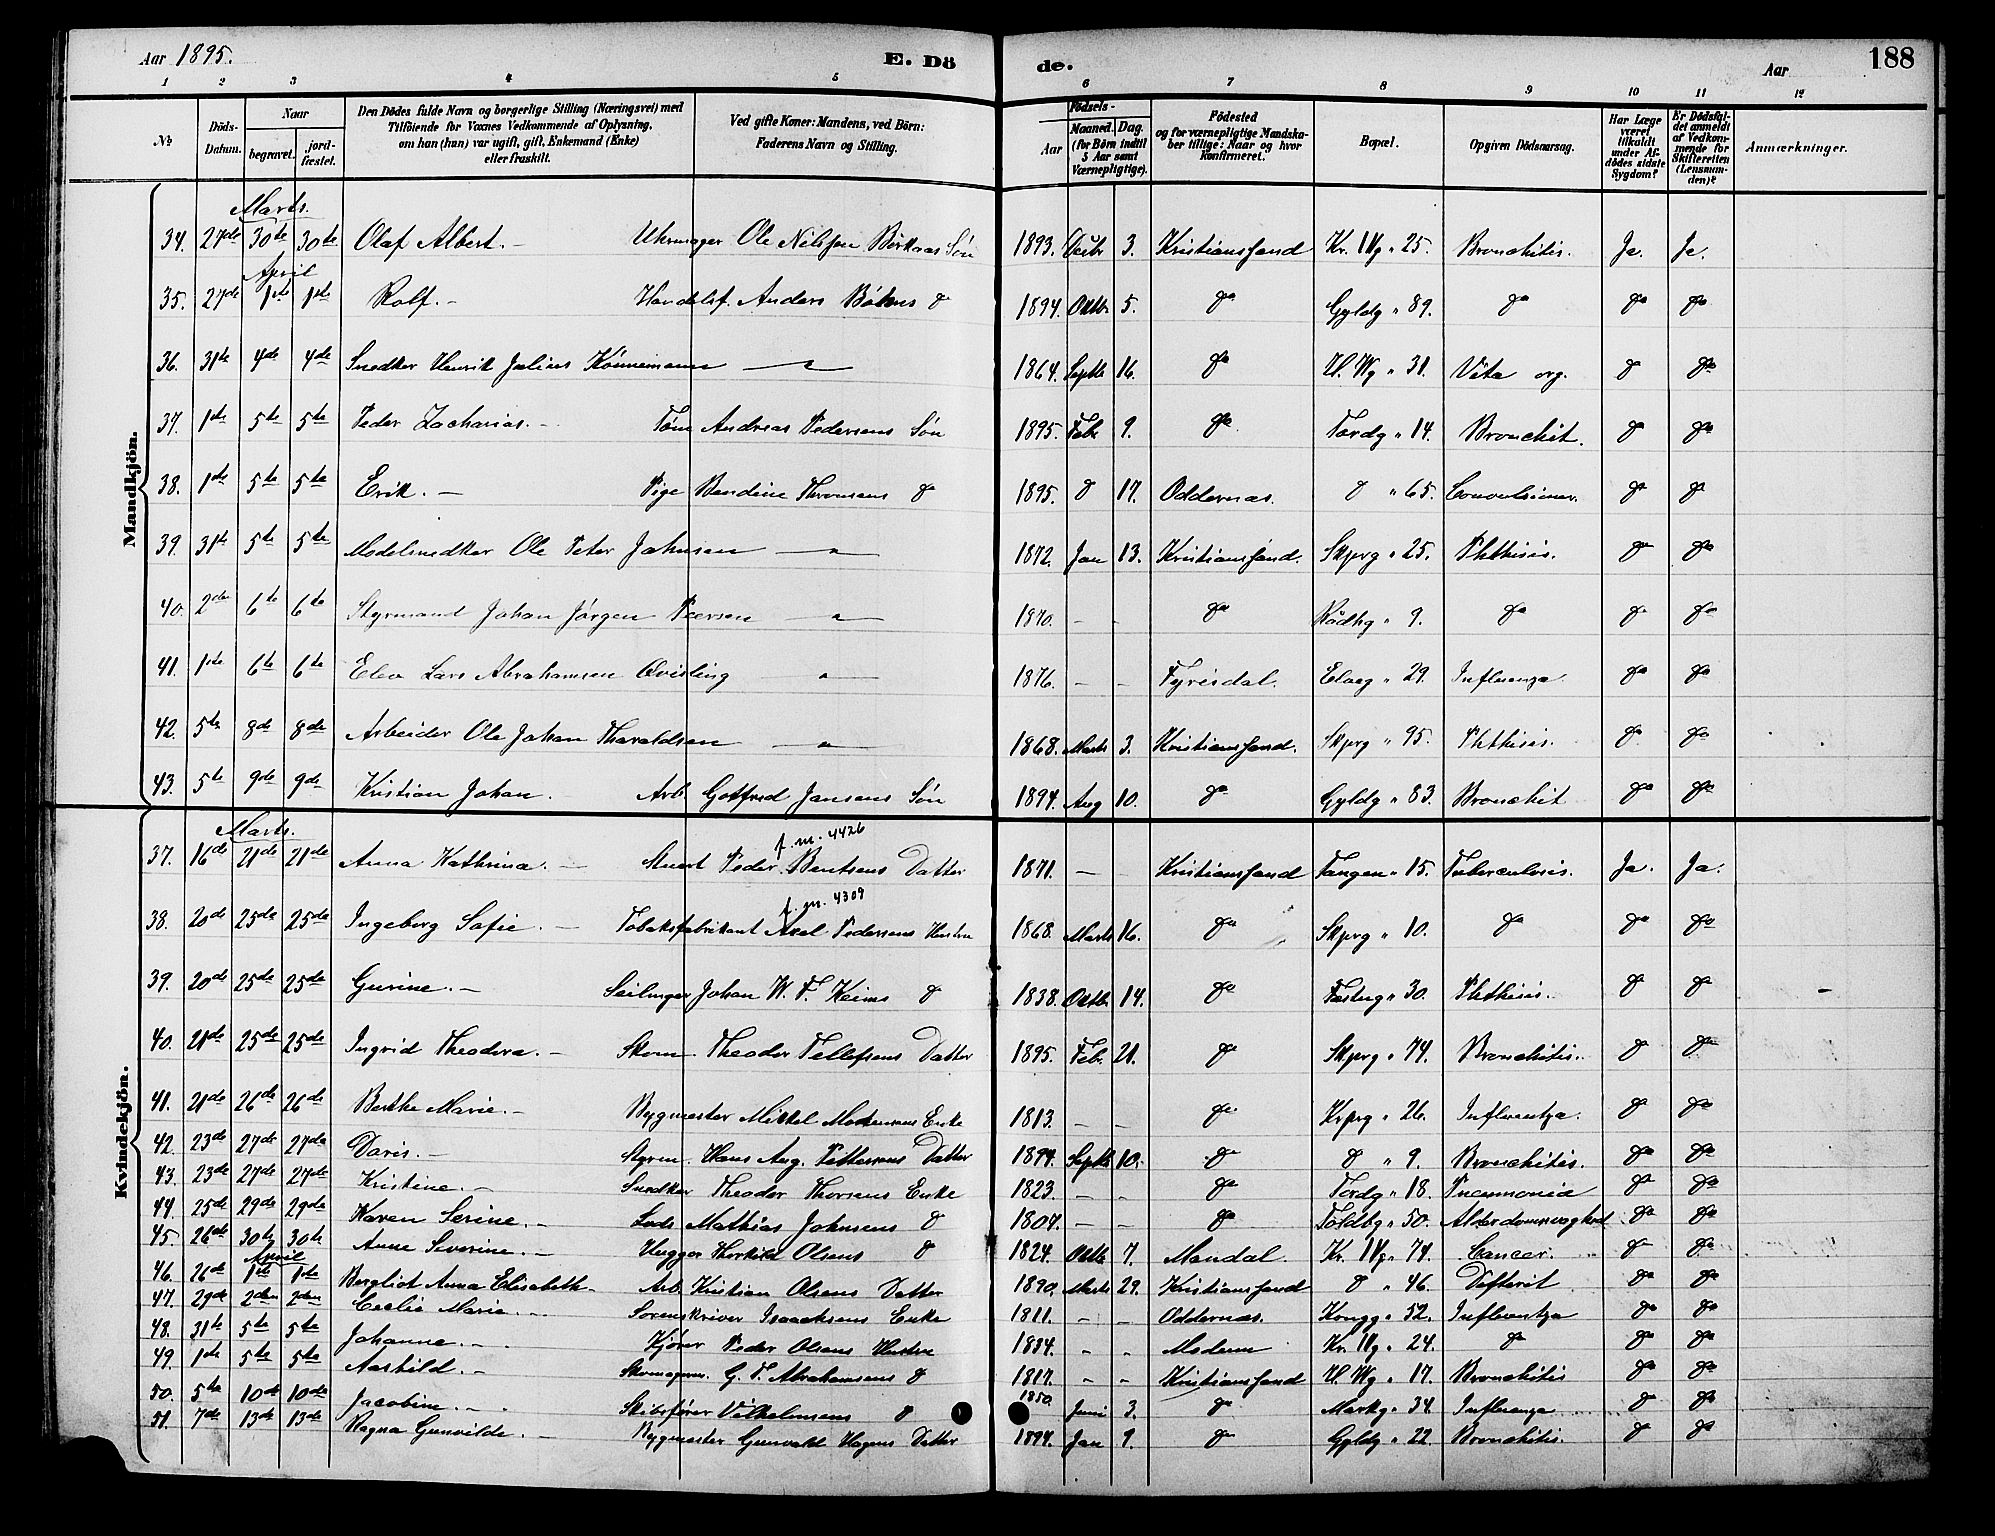 Aar 1895.
E. Dö de.
Aar
188
1 2 3 4 5 6 7 8 9 10 11 12
№
Döds-Datum.
Naar begravet. jordfæstet.
Den Dödes fulde Navn og borgerlige Stilling (Næringsvei) med Tilföiende for Voxnes Vedkommende af Oplysning, om han (hun) var ugift, gift, Enkemand (Enke) eller fraskilt.
Ved gifte Koner: Mandens, ved Börn: Faderens Navn og Stilling.
Födsels- Aar Maaned. Dag. (for Börn indtil 5 Aar samt Værnepligtige).
Födested og for værnepligtige Mandskaber tillige: Naar og hvor Konfirmeret.
Bopæl.
Opgiven Dödsaarsag.
Har Læge været tilkaldt under Afdödes sidste Sygdom?
Er Dödsfaldet anmeldt af Vedkommende for Skifteretten (Lensmanden)?
Anmærkninger.
Mandkjön.
Marts.
34. 27de 30te 30te Olaf Albert. – Uhrmager Ole Nilssen Birknes Søn 1893. Decbr 3. Kristianssand Kr. IVg " 25. Bronchitis. Ja. Ja.
April
35. 27de 1ste 1ste Rolf. – Handelsf. Anders Bøhns do 1894. Oktb 5. do Gyldg " 89. do do do
36. 31te 4de 4de Snedker Henrik Julius Könnemann — " — 1864. Septb 16. do V. Wg " 31. Vita org. do do
37. 1ste 5te 5te Peder Zacharias. – Tøm Andreas Pedersens Søn 1895. Feb 9. do Tordg " 14. Bronchit. do do
38. 1ste 5te 5te Erik. – Pige Bendine Thomsens do 1895. do 17. Oddernæs. do " 65. Convulsioner. do do
39. 31te 5te 5te Modelsnedker Ole Peter Johnsen — " — 1872. Jan 13. Kristianssand. Skprg " 25. Phthisis. do do
40. 2den 6te 6te Styrmand Johan Jørgen Peersen — " — 1870. – – do Rådhg " 9. do do do
41. 1ste 6te 6te Elev Lars Abrahamsen Qvisling — " — 1876. – – Fyrisdal. Elveg " 29. Influenza. do do
42. 5te 8de 8de Arbeider Ole Johan Tharaldsen — " — 1868. Marts 3. Kristianssand. Skprg " 95. Phthisis. do do
43. 5te 9de 9de Kristian Johan. Arb. Gotfred Jansens Søn 1894. Aug 10. do Gyldg " 83. Bronchit do do
Kvindekjön.
Marts.
f. m. 4426
37. 16de 21de 21de Anna Kathrina. – Stuert Peder Bentsens Datter 1871. – Kristianssand Tangen " 15. Tuberculosis. Ja. Ja.
f. m. 4309
38. 20de 25de 25de Ingeborg Sofie. – Tobaksfabrikant Axel Pedersens Hustru 1868. Marts 16. do Skprg " 10. do do do
39. 20de 25de 25de Gurine. – Seilmager Johan W. F. Keims do 1838. Oktb 14. do Fæstng " 30. Phthisis. do do
40. 21de 25de 25de Ingrid Theodora. – Skom. Theodor Tellefsens Datter 1895. Feb. 21. do Skprg " 74. Bronchitis. do do
41. 21de 26de 26de Berthe Marie. – Bygmester Mikkel Mortensens Enke 1813. – – do Kvprg " 26. Influentza. do do
42. 23de 27de 27de Doris. – Styrm. Hans Aug. Pettersens Datter 1894. Septb 10. do do " 9. Bronchitis. do do
43. 23de 27de 27de Kristine. – Snedker Theodor Thorsens Enke 1823. – – do Tordg " 18. Pneumonia do do
44. 25de 29de 29de Karen Serine. – Lods Mathias Johnsens do 1807. – – do Toldbg " 50. Alderdomssvaghed do do
45. 26de 30te 30te Anne Severine. – Hugger Therkild Olsens do 1824. Oktb 7. Mandal. Kr. IVg " 74. Cancer. do do
April
46. 26de 1ste 1ste Bergliot Anna Elisabeth. Arb. Kristian Olsens Datter 1890. Marts 29. Kristianssand do " 46. Difterit do do
47. 29de 2den 2den Cecilie Marie. – Sorenskriver Isaachsens Enke 1811. – – Oddernæs. Kongg " 52. Influentza do do
48. 31te 5te 5te Johanne. – Kjører Peder Olsens Hustru 1834. " – Modum Kr. IVg " 24. do do do
49. 1ste 5te 5te Aashild. – Skomagerm. G. T. Abrahamsens do 1817. " – Kristianssand V. Wg " 17. Bronchitis do do
50. 5te 10de 10de Jacobine. – Skibsfører Vilhelmsens do 1850. Juni 3. do Markg " 34. Influenza do do
51. 7de 13de 13de Ragna Gunvilde. – Bygmester Gunvald Hagens Datter 1894. Jan 9. do Gyldg " 22. Bronchitis. do do